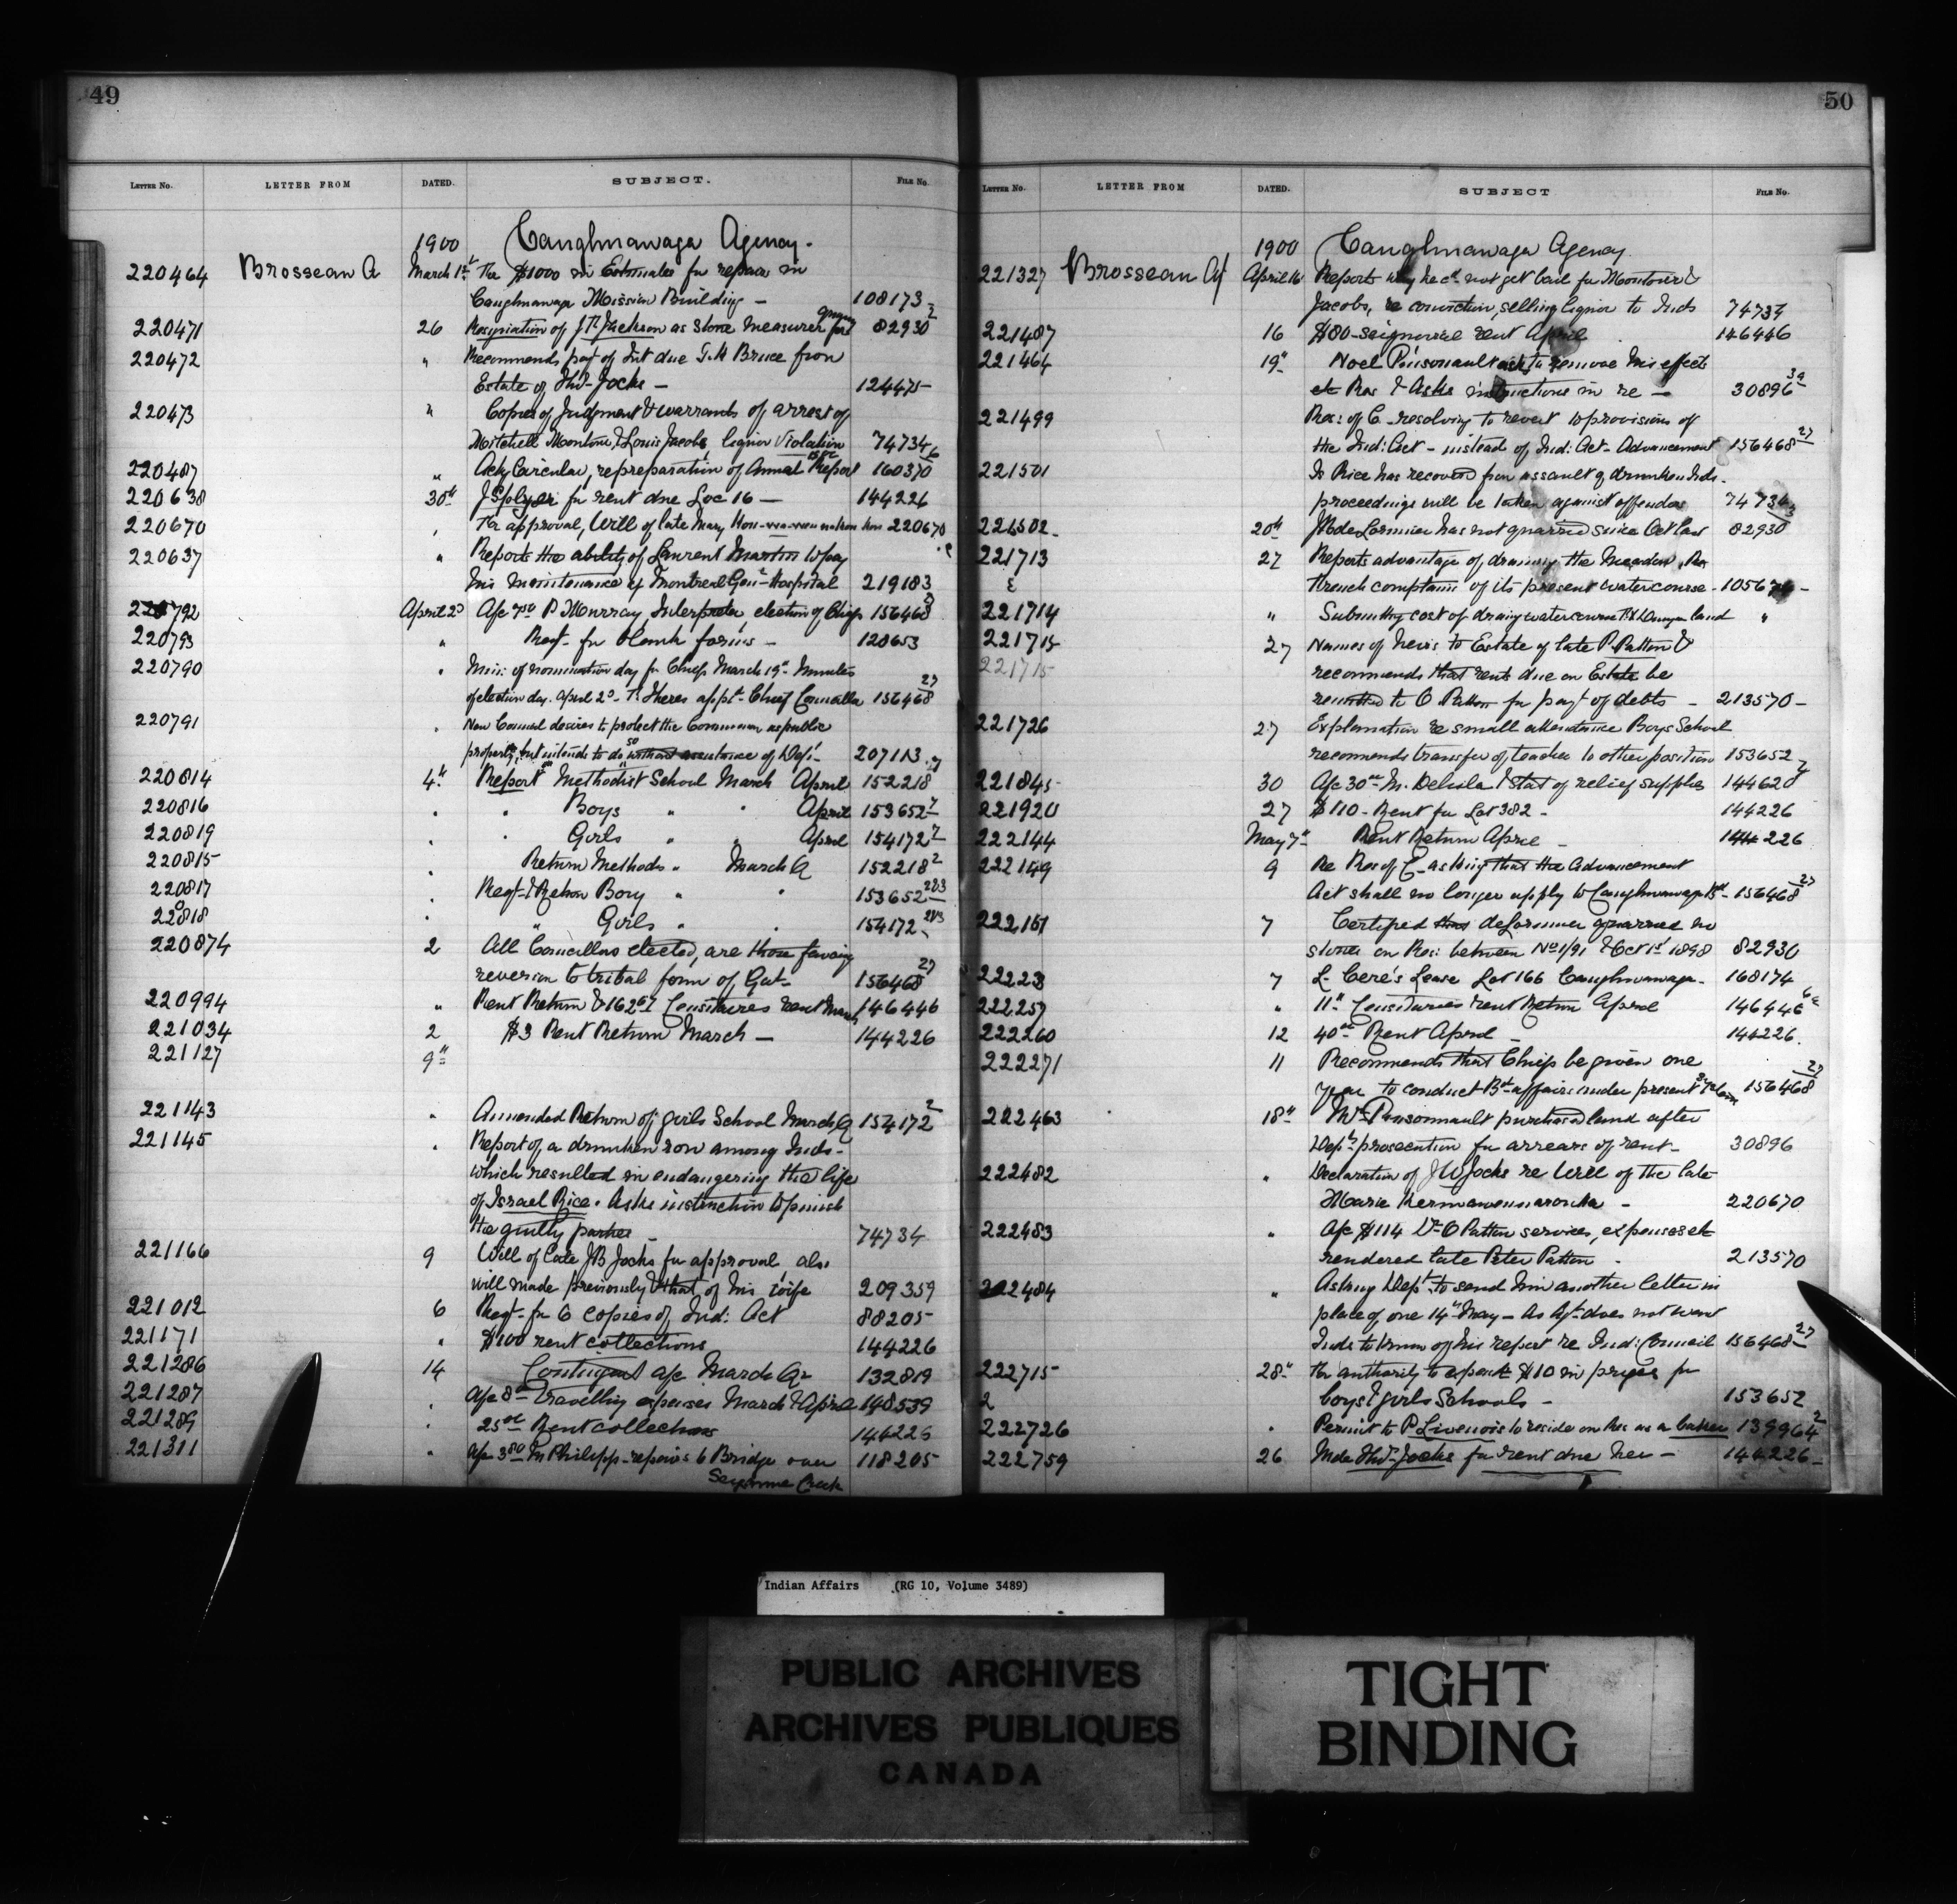 49
LETTER NO. LETTER FROM DATED. SUBJECT. FILE NO.
1900 Caughnawaga Agency.
220464 Brosseau A March 1st The $1000 in Estimates for repair in
Caughnawaga Mission Building - 108173 2
220471 26 Resignation of J.T. Jackson as stone measurer 82930
220472 " Recommends payt of Int due G.H Bruce from
Estate of Thos Jocks - 124475
220473 " Copies of Judgment & warrants of arrest of
Mitchell Montour & Louis Jacobs, liquor violation 74734
220487 " Ackg Circular, re preparation of Annual Report 160370
220638 30th for rent due Loc 16 - 144226
220670 For approval, Will of late Mary 220670
220637 " Reports the ability of Laurent Martin to pay
his maintenance of Montreal Genl Hospital 219183
220792 April 2d P Murray, Interpreter, election of Chiefs 156468
220793 " Reqt for blank forms - 120653
220790 " Min: of nomination day for Chiefs March 19th Minutes
of election day. April 2d - appt Chief Councillor 156468 27
220791 " New Council desires to protect the Common as public
property, but intends to do so without assistance of Dept - 207113
220814 4th Report Methodist School March April 152218
220816 " " Boys " " April 153652
220819 " " Girls " " April 154172
220815 " Return Methods " March Q 152218 2
220817 " Reqt & Return Boys " " 153652 2&3
220818 " " Girls " " 154172 2&3
220874 2 All Councillors elected, are those favoring
reversion to tribal form of Govt - 156468 27
220994 " Rent Return & Censitaires rent March 146446
221034 2 $3 Rent Return March - 144226
221127 9th
221143 " Amended Return of girls School March Q 154172 2
221145 " Report of a drunken row among Inds -
which resulted in endangering the life
of Israel Rice. Asks instruction to punish
the guilty parties - 74734
221166 9 Will of late JB Jocks for approval, also
will made previously & that of his wife 209359
221012 6 Reqt for 6 copies of Ind: Act 88205
221171 " $100 rent collections 144226
221286 14 Contingent a/c March Qr 132819
221287 " a/c travelling expenses March & April 148539
221289 " 25 Rent collections 144226
221311 " a/c M Philipp - repairs to Bridge over 118205
Creek
50
LETTER NO. LETTER FROM DATED. SUBJECT FILE NO.
1900 Caughnawaga Agency
221327 Brosseau A April 16 Reports why he cd not get bail for Montour &
Jacobs, re conviction, selling liquor to Inds 74734
221487 16 $80 - seignorial rent April 146446
221464 19th Noel Pinsonnault ask to remove his effects
etc Res & Asks instructions in re - 30896
221499 Res: of C. resolving to revert to provisions of
the Ind: Act - instead of Ind: Act - Advancement 156468 27
221501 Is Rice has recovered from assault of drunken Inds -
proceedings will be taken against offenders 74734
221502 20th deLorimier has not quarried since Oct last 82930
221713 27 Reports advantage of draining the Meadow,
French complain of its present watercourse -
221714 " Submitting cost of draing watercourse land "
221715 27 Names of heirs to Estate of late P. Patton &
221715 recommends that rents due on Estate be
remitted to O Patton for payt of debts - 213570 -
221726 27 Explanation re small attendance Boys School
recommends transfer of teacher to other position 153652
221845 30 a/c M. Delisle & stat of relief supplies 144620
221920 27 $110 - Rent for Lot 382 - 144226
222144 May 7th Rent Return April - 144226
222149 9 Re Res of C - asking that the Advancement
Act shall no longer apply to Caughnawaga Bd - 156468 27
222161 7 Certified deLorimier quarried no
stones on Res: between & Oct 1st 1898 82930
7 L. Cere's Lease Lot 166 Caughnawaga - 168174
222257 " 11th Censitaires rent Return April 146446
222260 12 40 Rent April - 144226.
222271 11 Recommends that Chiefs be given one
year to conduct Bd affairs under present system 156468 27
222463 18th Pinsonnault purchased land after
Dept prosecution for arrears of rent - 30896
222482 " Declaration of J W Jocks re Will of the late
Marie - 220670
222483 " a/c $114 Dr O Patton services, expenses etc
rendered late Peter Patton - 213570
222484 " Asking Dept to send him another letter in
place of one 14th May - As Agt does not want
Inds to know of his report re Ind: Council 156468 27
222715 28th For authority to expend $10 in prizes for
2 boys & girls Schools - 153652
222726 " Permit to P Livernois to reside on Res as a baker 139964 2
222759 26 Mde Thos Jocks for rent due her - 144226 -
Indian Affairs (RG 10, Volume 3489)
PUBLIC ARCHIVES
ARCHIVES PUBLIQUES
CANADA
TIGHT
BINDING